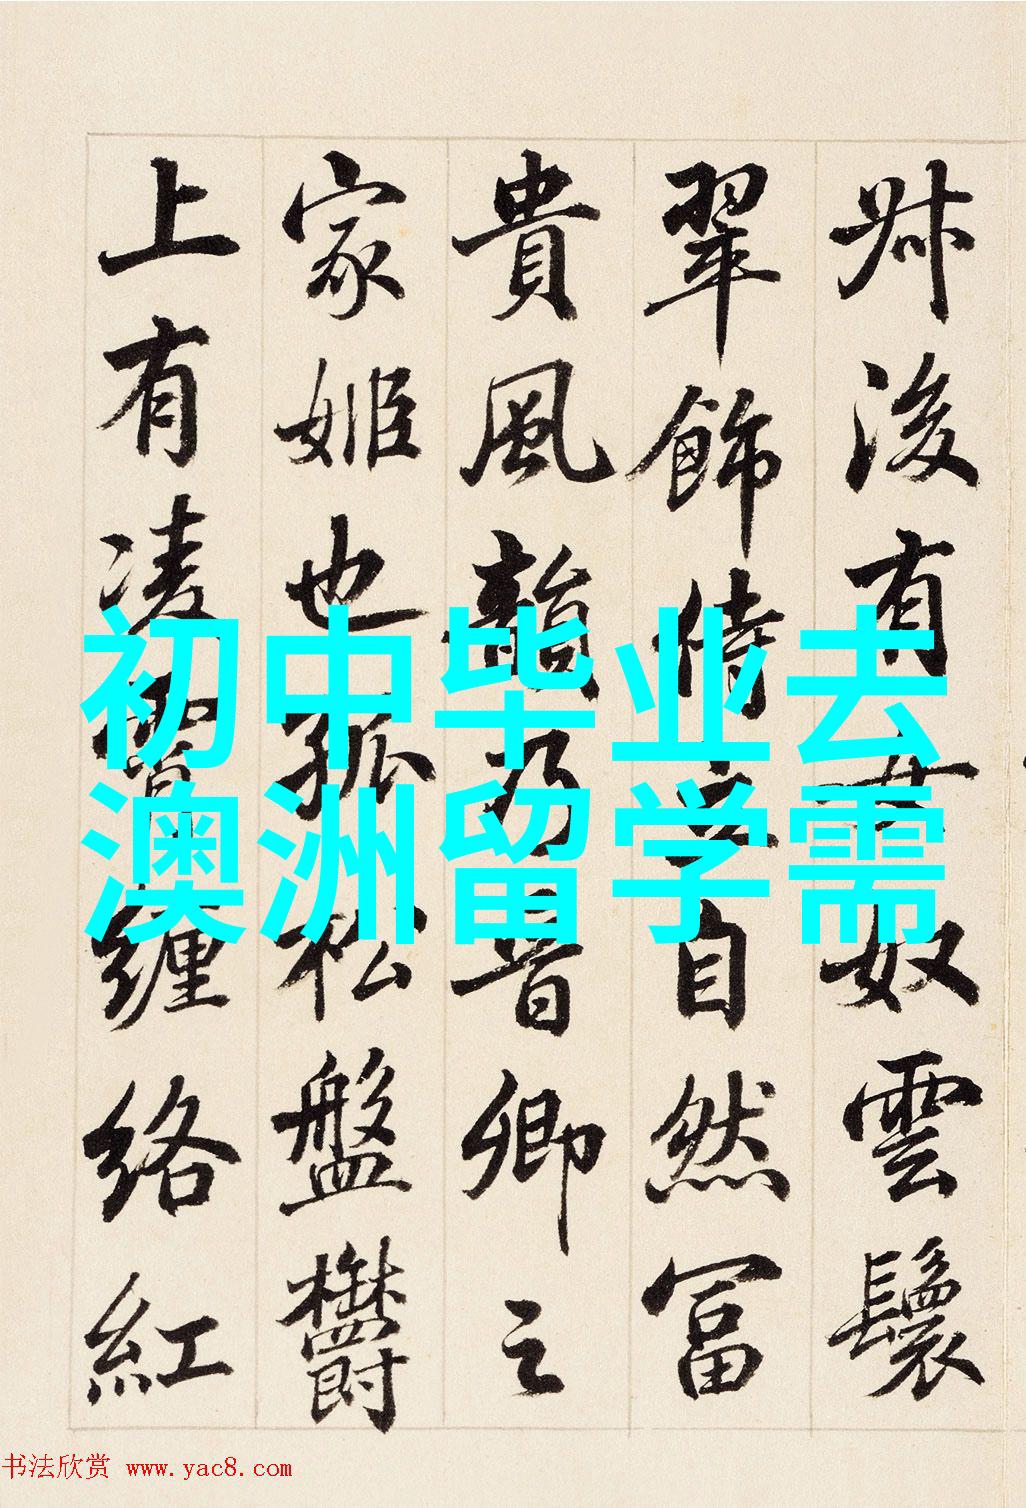 初中毕业去
澳洲留学需
叔後有女奴雲鬟
翠飾侍立自然富
貴風韻乃晉卿之
家姬也孤松盤欝
上有凌霄纏絡紅
书法欣赏 www.yac8.com